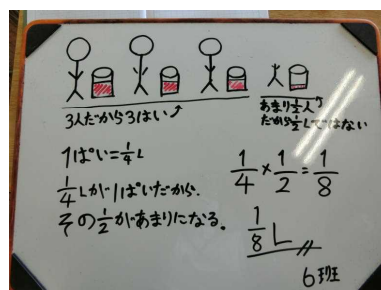 3人だから3ばい
あまり1/2人
だから1/2Lではない
1ぱい=1/4L
1/4Lが1ぱいだから、
その1/2があまりになる。
1/4×1/2=1/8
1/8L
6班